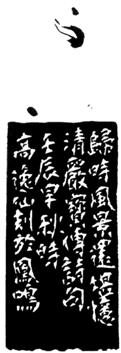 歸時風景還堪憶
清嚴寶傳詩句
壬辰年利時
高逸仙刻於鳳鳴